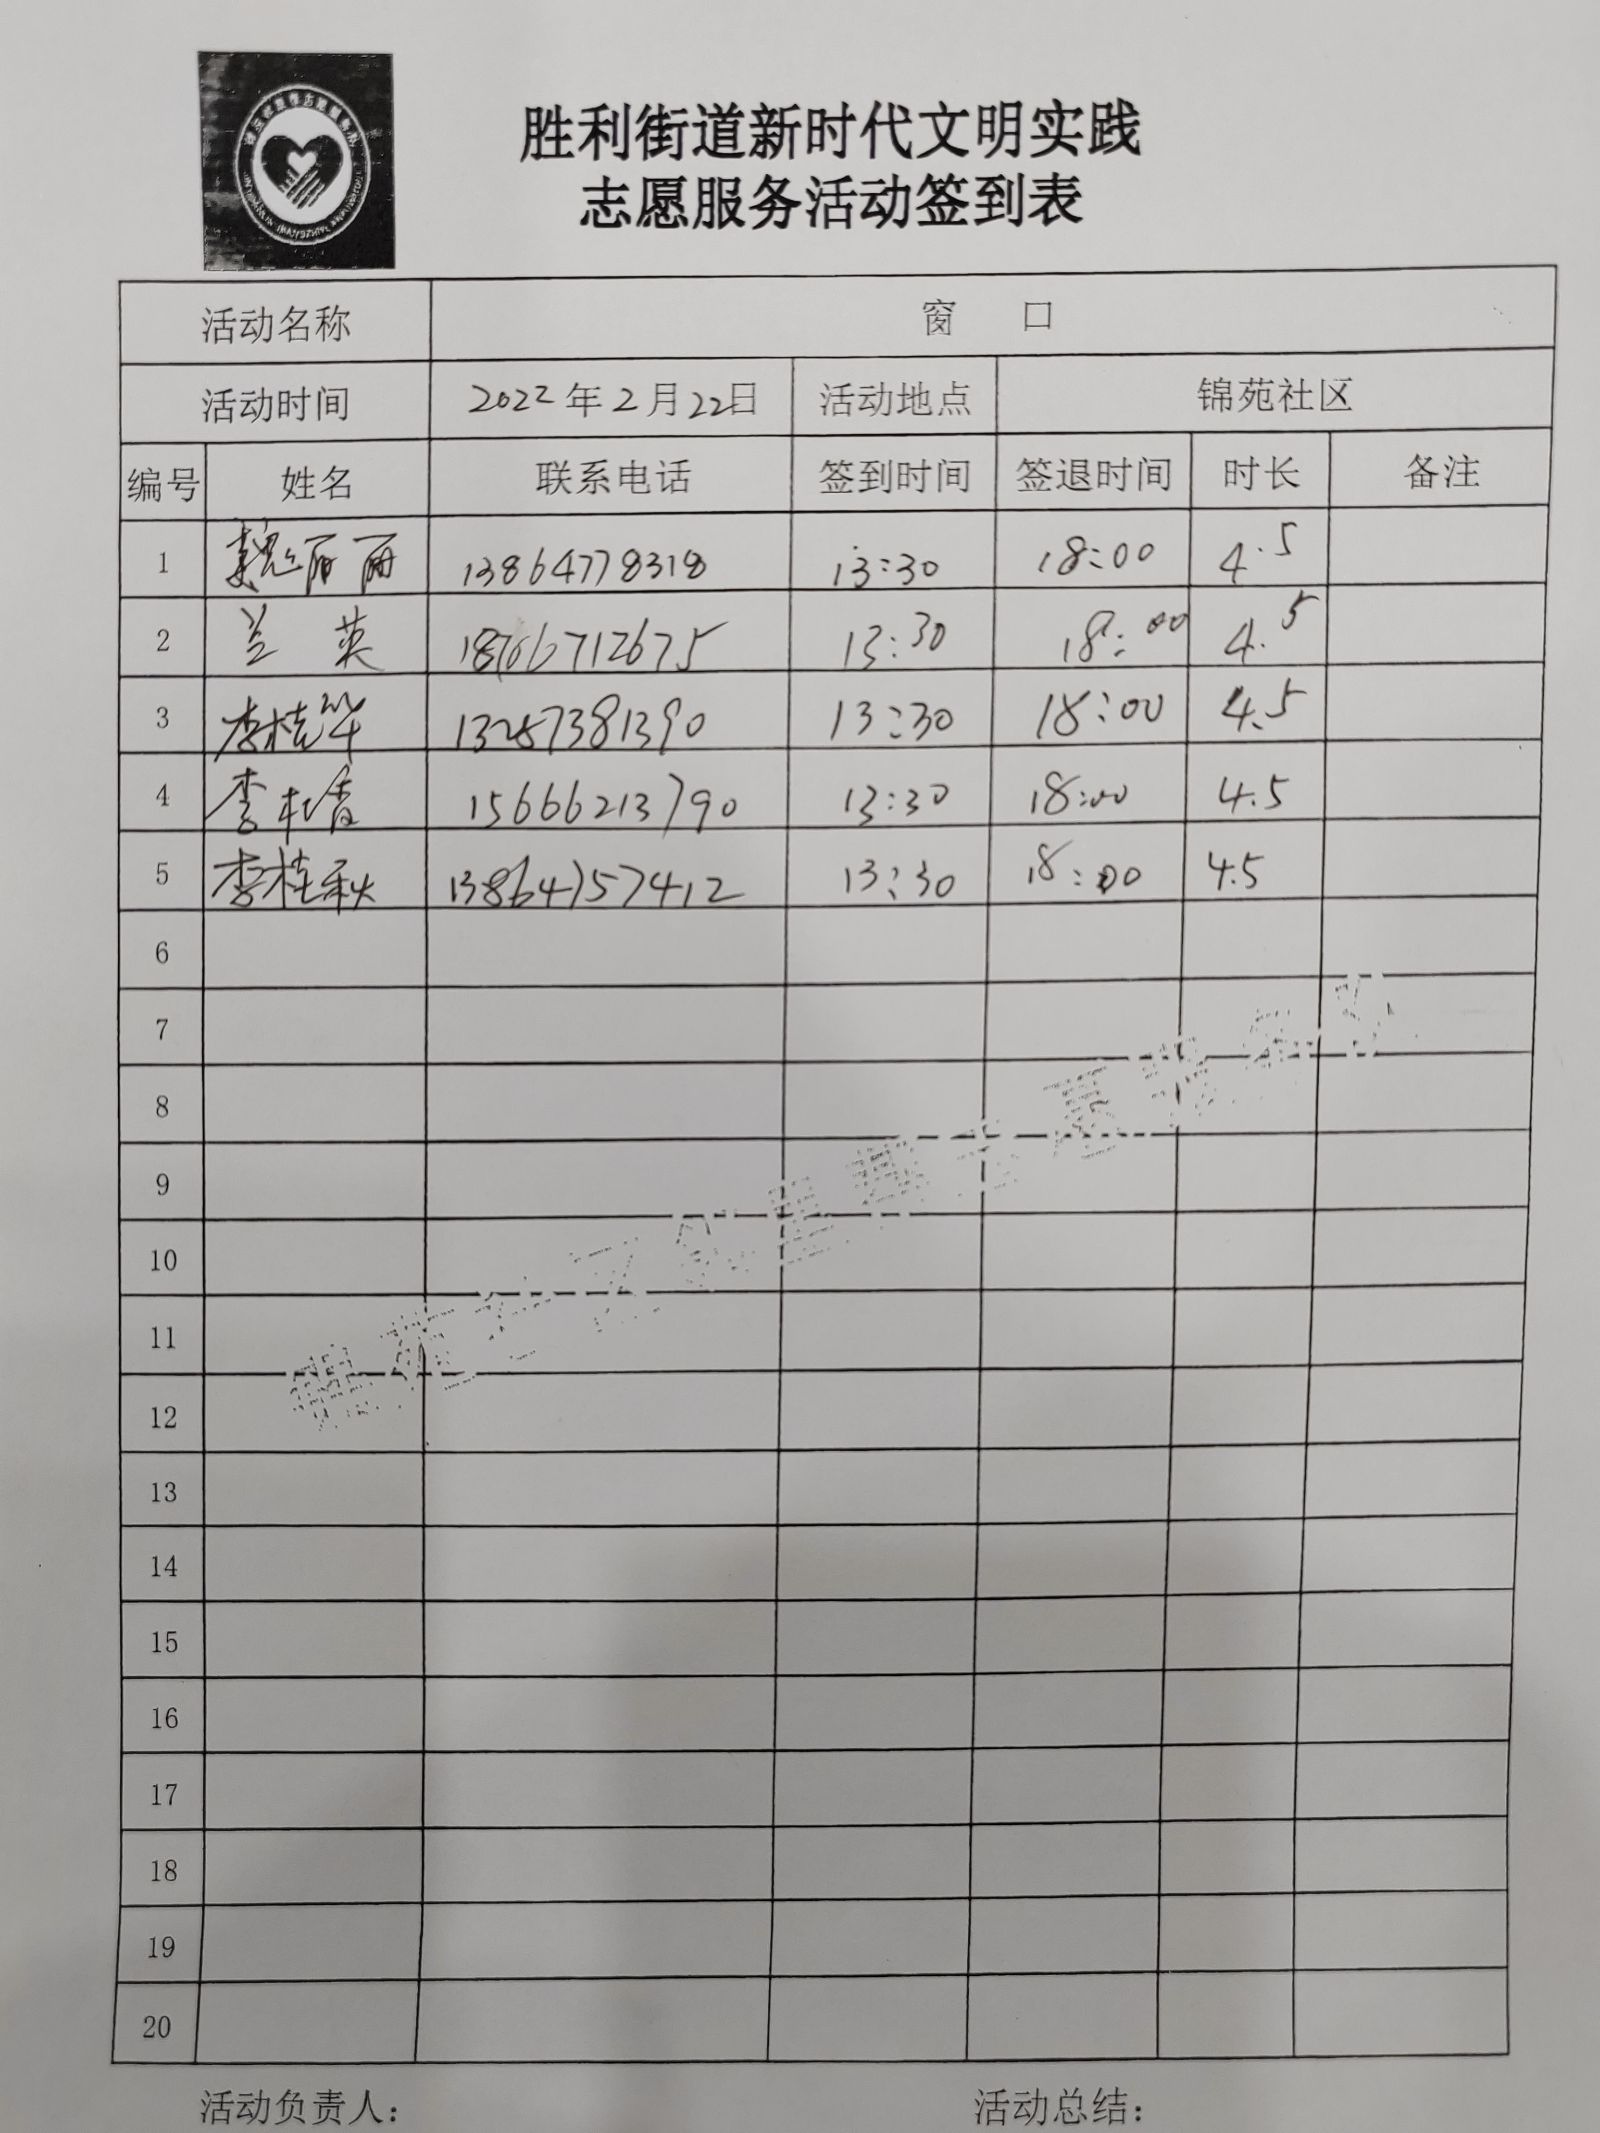 胜利街道新时代文明实践
志愿服务活动签到表
活动名称 窗 口
活动时间 2022年2月22日 活动地点 锦苑社区
编号 姓名 联系电话 签到时间 签退时间 时长 备注
1 魏丽丽 13864778318 13:30 18:00 4.5
2 兰英 18766712675 13:30 18:00 4.5
3 李桂华 13287381390 13:30 18:00 4.5
4 李木香 15666213790 13:30 18:00 4.5
5 李桂秋 13864757412 13:30 18:00 4.5
6
7
8
9
10
11
12
13
14
15
16
17
18
19
20
活动负责人： 活动总结：